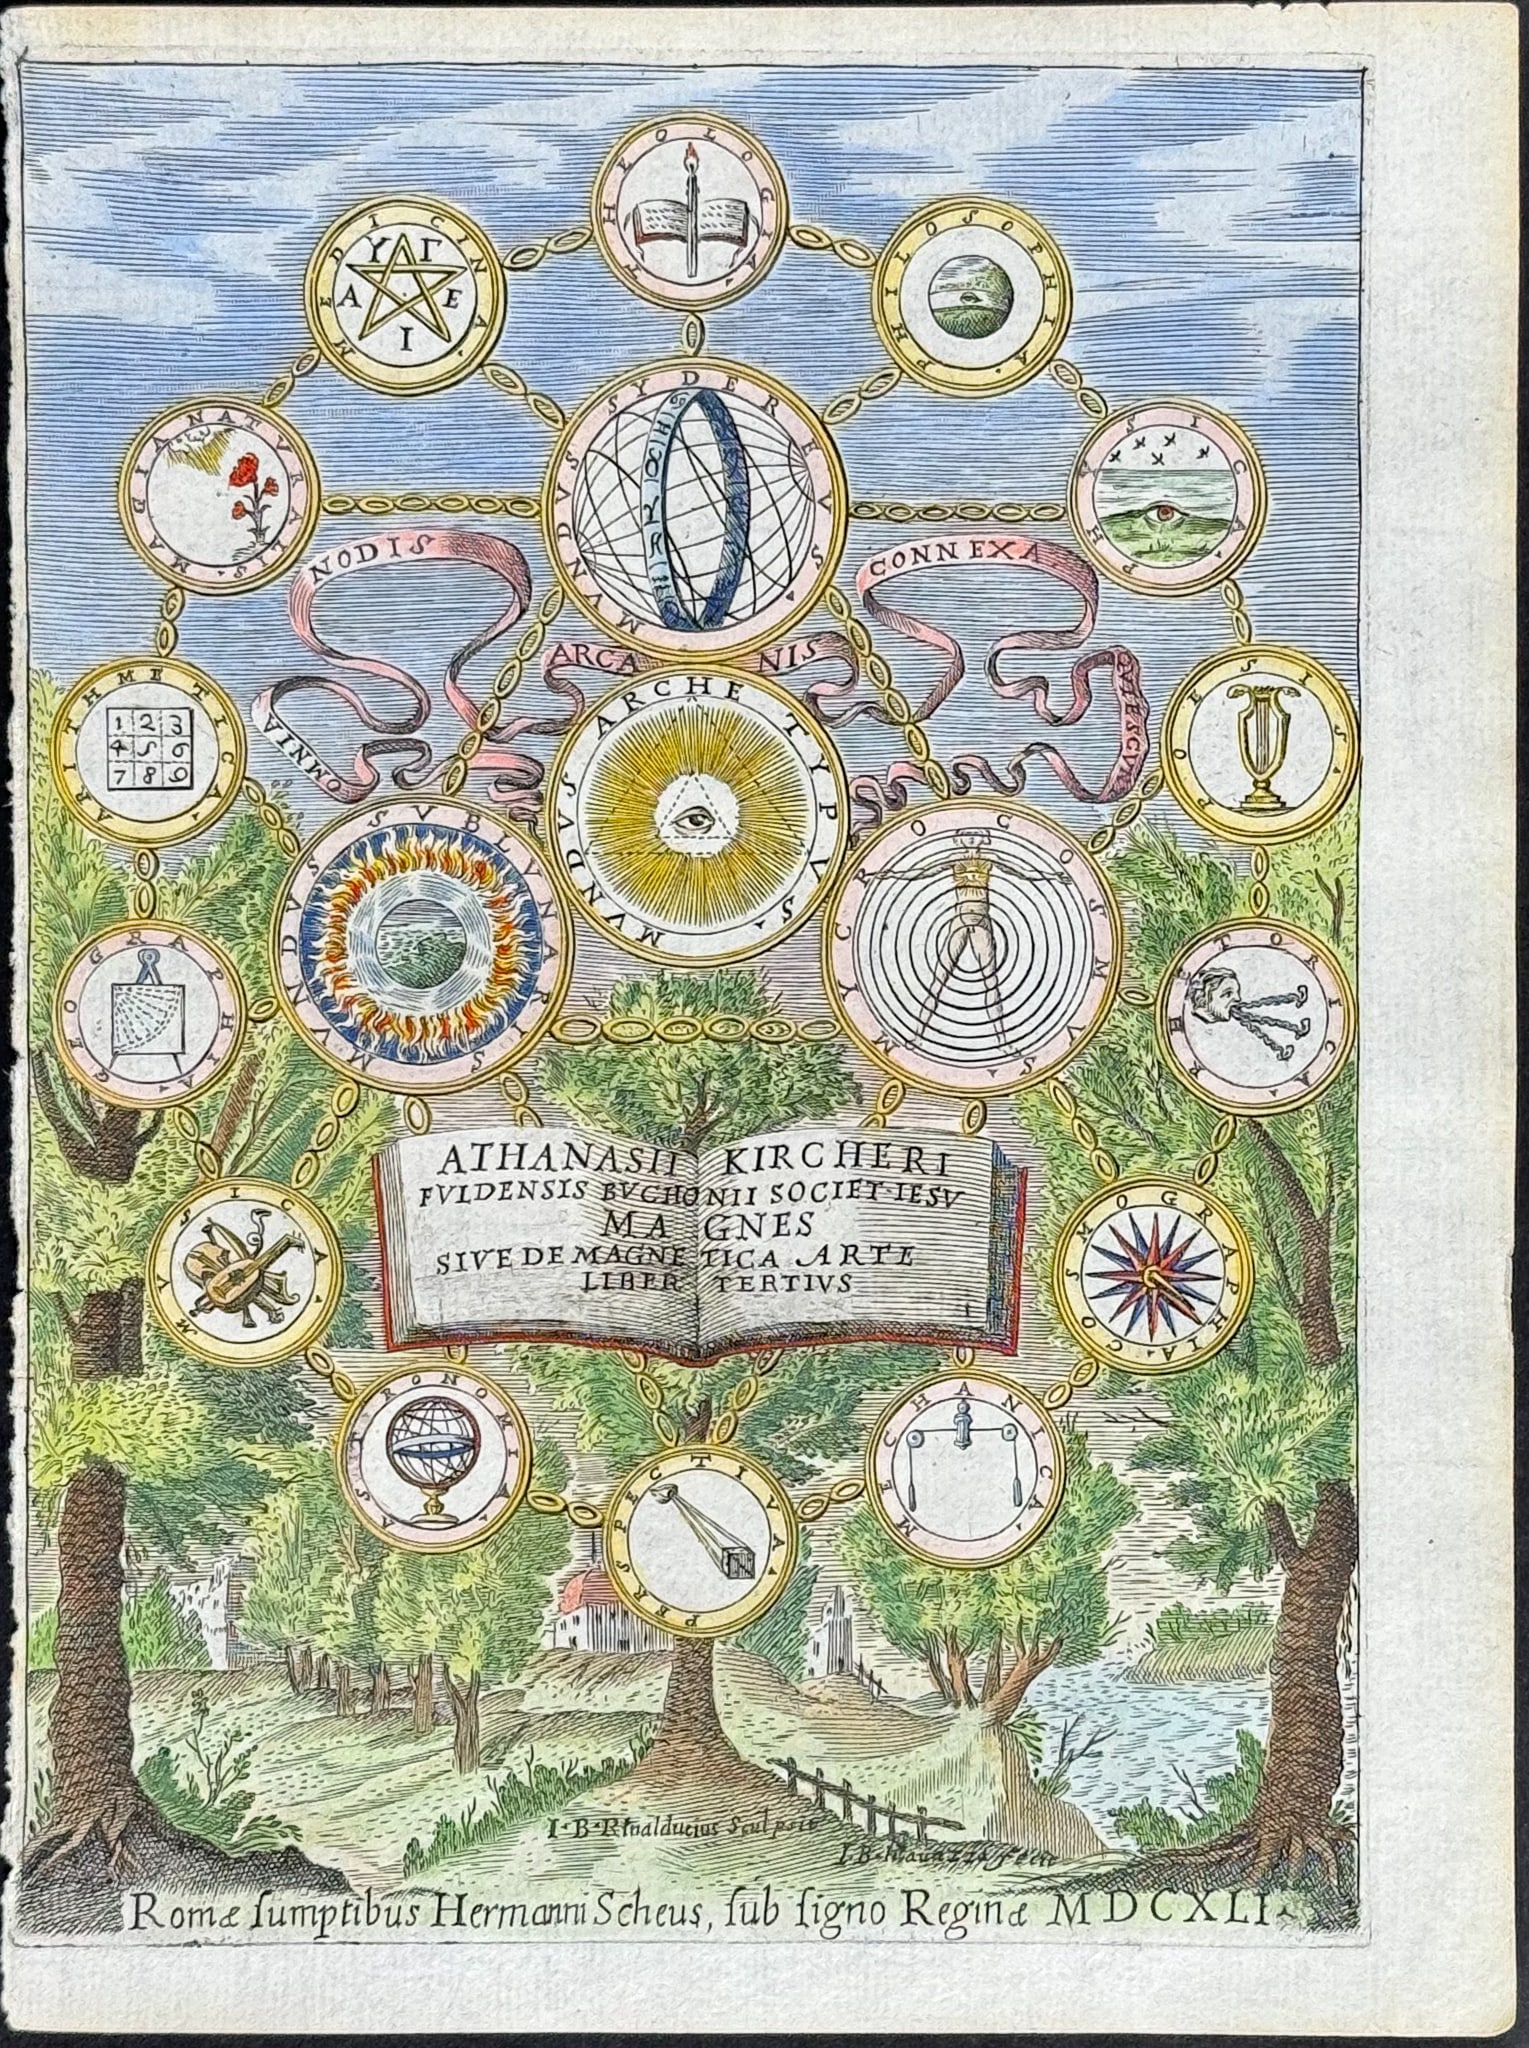 THEOLOGIA.
MEDICINA.
ΥΓ
A E
I
PHILOSOPHIA.
MAGIA NATVRALIS.
MVNDVS SYDEREVS.
PHYSICA.
NODIS
CONNEXA
ARCA NIS
OMNIA
QVIESCVNT
ARITHMETICA.
1 2 3
4 5 6
7 8 9
MVNDVS ARCHETYPVS.
POESIS.
MVNDVS SVBLVNARIS
MYCROCOSMVS.
GEOGRAPHIA.
RETORICA.
ATHANASII KIRCHERI
FVLDENSIS BVCHONII SOCIET·IESV
MAGNES
SIVE DE MAGNETICA ARTE
LIBER TERTIVS
MVSICA.
COSMOGRAPHIA.
ASTRONOMIA
MECHANICA.
PERSPECTIVA.
I·B·Rinalducius Sculpsit
I.B. fecit
Romæ ſumptibus Hermanni Scheus, ſub ſigno Reginæ MDCXLI.